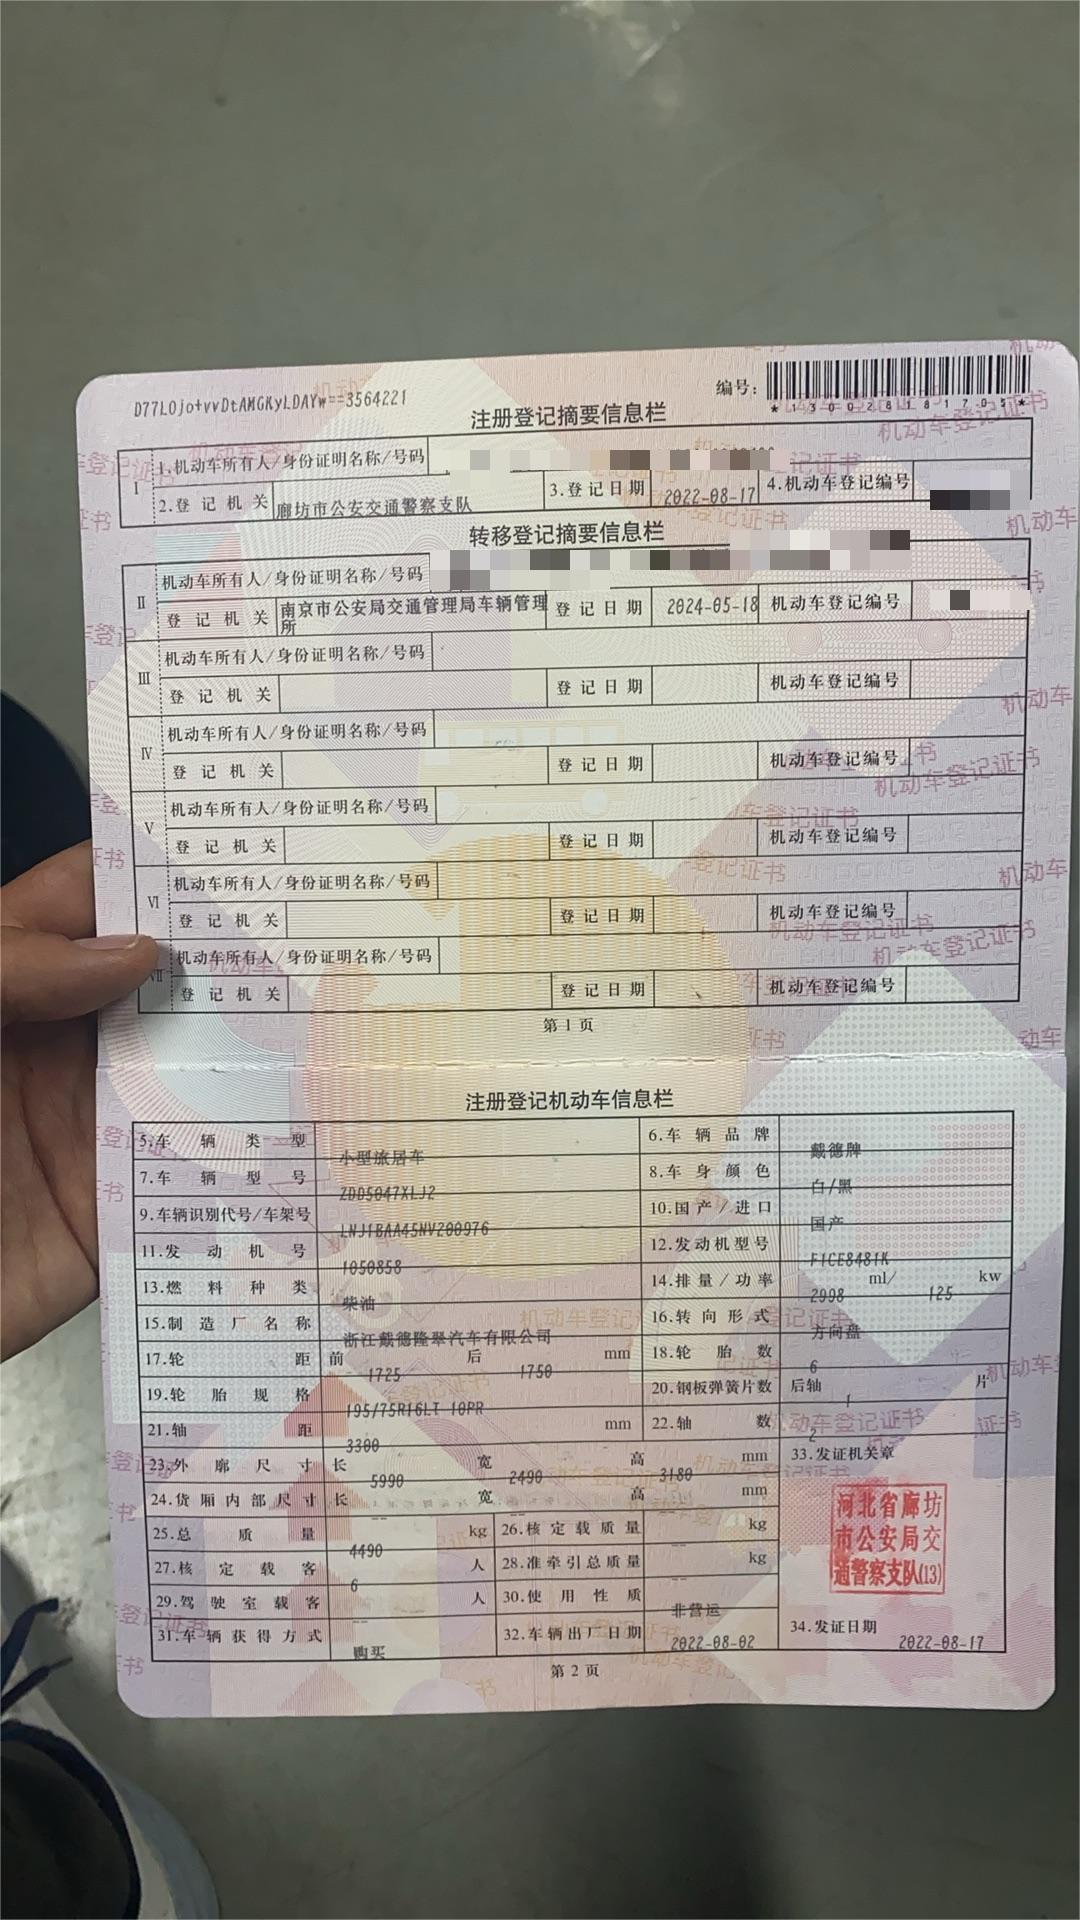 D77LOjo+vvDtAMGKyLDAYw==3564221
编号:
*130028181705*
注册登记摘要信息栏
I
1.机动车所有人/身份证明名称/号码
2.登记机关 廊坊市公安交通警察支队 3.登记日期 2022-08-17 4.机动车登记编号
转移登记摘要信息栏
II
机动车所有人/身份证明名称/号码
登记机关 南京市公安局交通管理局车辆管理所 登记日期 2024-05-18 机动车登记编号
III
机动车所有人/身份证明名称/号码
登记机关 登记日期 机动车登记编号
IV
机动车所有人/身份证明名称/号码
登记机关 登记日期 机动车登记编号
V
机动车所有人/身份证明名称/号码
登记机关 登记日期 机动车登记编号
VI
机动车所有人/身份证明名称/号码
登记机关 登记日期 机动车登记编号
VII
机动车所有人/身份证明名称/号码
登记机关 登记日期 机动车登记编号
第1页
注册登记机动车信息栏
5.车辆类型 小型旅居车 6.车辆品牌 戴德牌
7.车辆型号 ZDD5047XLJ2 8.车身颜色 白/黑
9.车辆识别代号/车架号 LNJ1BAA45NV200976 10.国产/进口 国产
11.发动机号 1050858 12.发动机型号 F1CE8481K
13.燃料种类 柴油 14.排量/功率 2998 ml/ 125 kw
15.制造厂名称 浙江戴德隆翠汽车有限公司 16.转向形式 方向盘
17.轮距 前 1725 后 1750 mm 18.轮胎数 6
19.轮胎规格 195/75R16LT 10PR 20.钢板弹簧片数 后轴 1 片
21.轴距 3300 mm 22.轴数 2
23.外廓尺寸 长 5990 宽 2490 高 3180 mm 33.发证机关章
24.货厢内部尺寸 长 -- 宽 -- 高 -- mm
25.总质量 4490 kg 26.核定载质量 -- kg
27.核定载客 6 人 28.准牵引总质量 -- kg
29.驾驶室载客 -- 人 30.使用性质 非营运
31.车辆获得方式 购买 32.车辆出厂日期 2022-08-02 34.发证日期 2022-08-17
河北省廊坊
市公安局交
通警察支队(13)
第2页